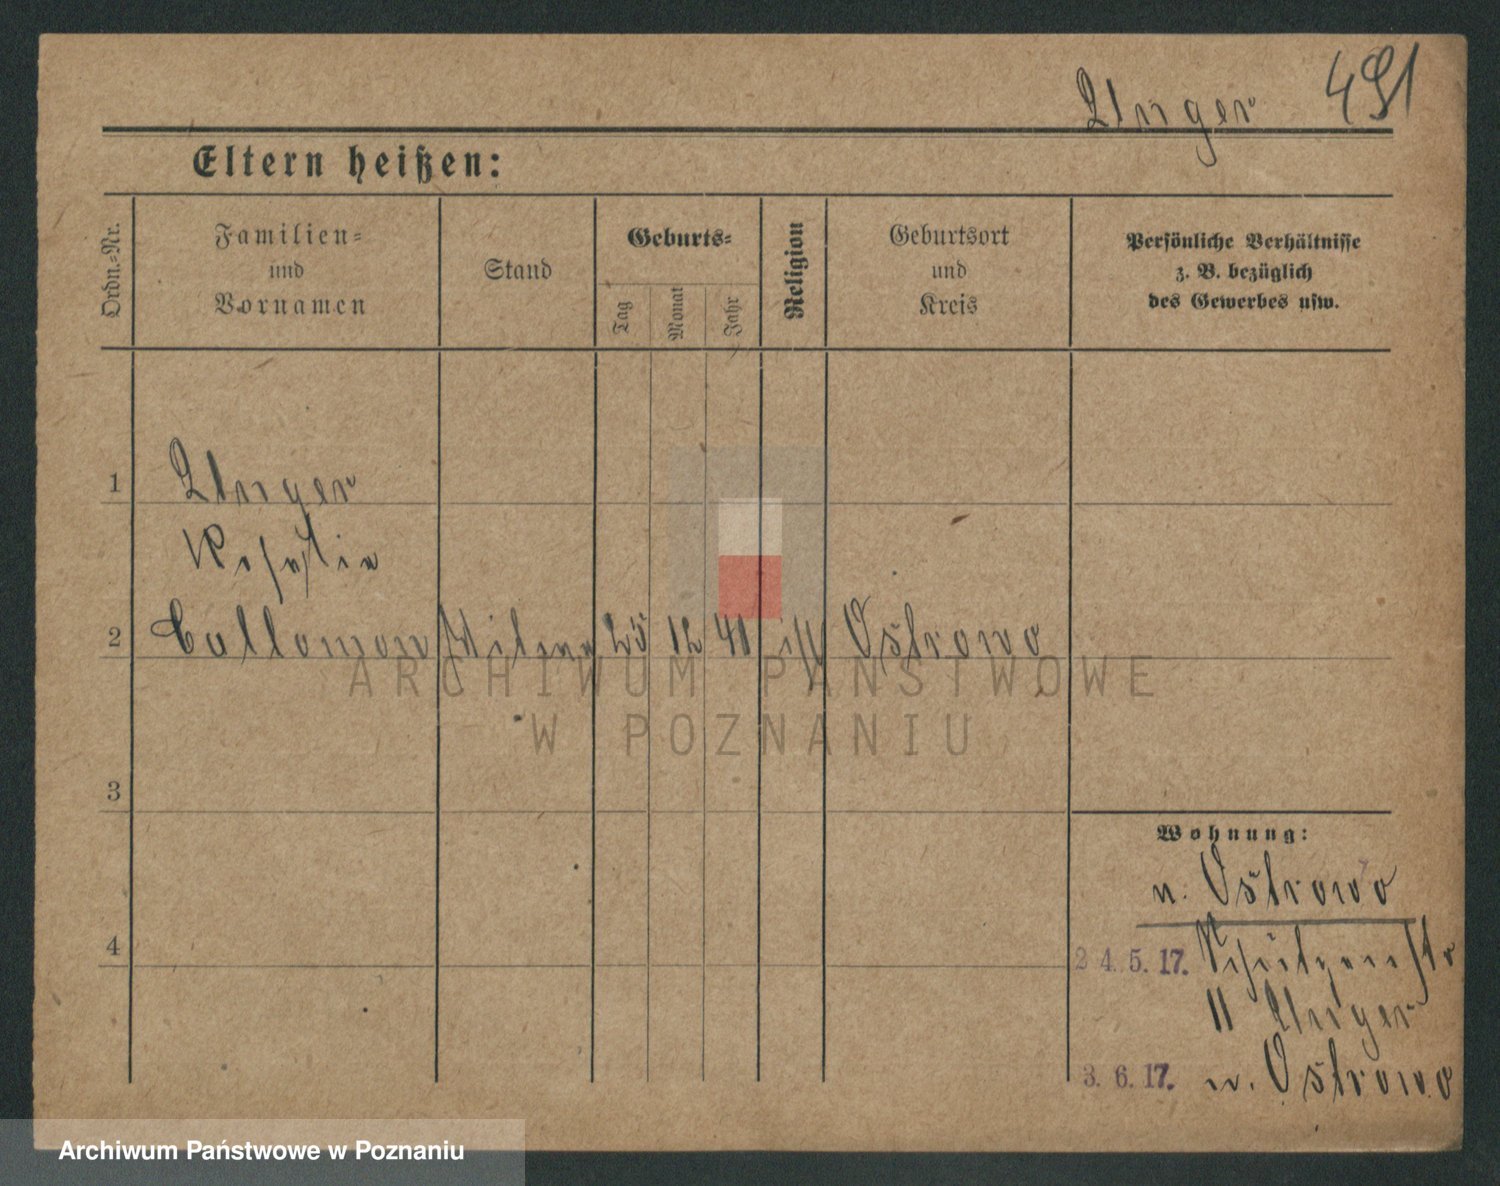 Unger 491
Eltern heißen:
Ordn.-Nr.
Familien-
und
Vornamen
Stand
Geburts-
Tag
Monat
Jahr
Religion
Geburtsort
und
Kreis
Persönliche Verhältnisse
z. B. bezüglich
des Gewerbes usw.
1
Unger
2
Callomon Witwe 25 12 41 Ostrowo
3
4
Wohnung:
n. Ostrowo
24.5.17. Schützenstr
11 Unger
3.6.17. n. Ostrowo
ARCHIWUM PAŃSTWOWE
W POZNANIU
Archiwum Państwowe w Poznaniu